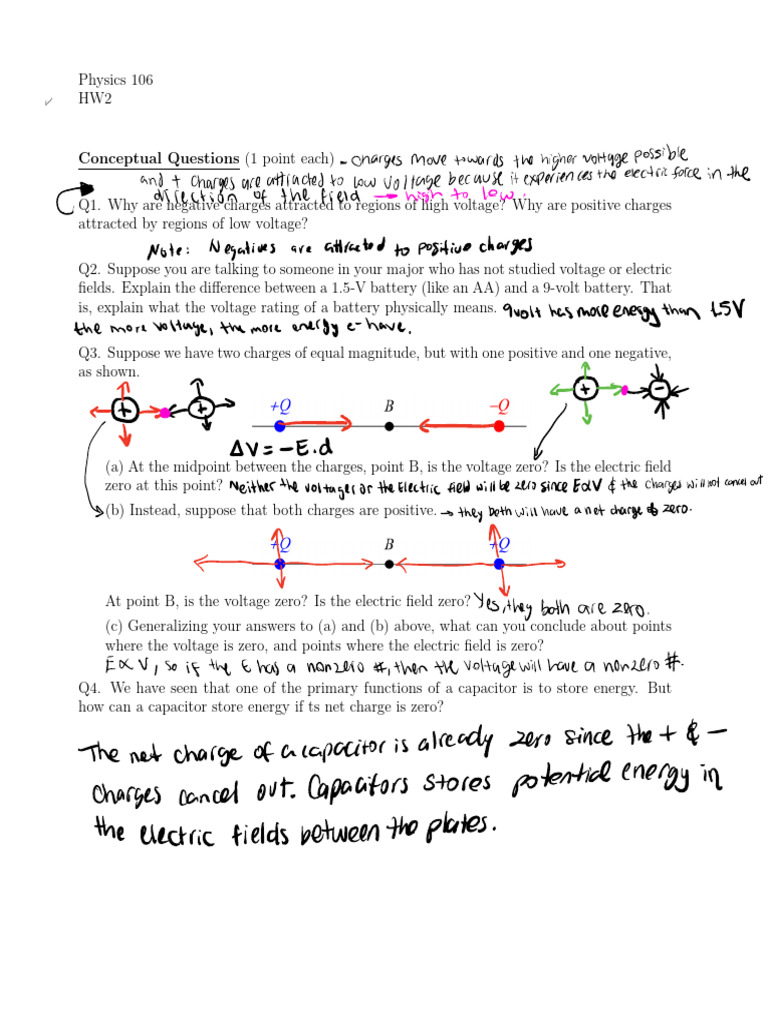 Physics 106
HW2
Conceptual Questions (1 point each) - charges move towards the higher voltage possible
and + charges are attracted to low voltage because it experiences the electric force in the
direction of the field → high to low.
Q1. Why are negative charges attracted to regions of high voltage? Why are positive charges
attracted by regions of low voltage?
Note: Negatives are attracted to positive charges
Q2. Suppose you are talking to someone in your major who has not studied voltage or electric
fields. Explain the difference between a 1.5-V battery (like an AA) and a 9-volt battery. That
is, explain what the voltage rating of a battery physically means. 9volt has more energy than 1.5V
the more voltage, the more energy e- have.
Q3. Suppose we have two charges of equal magnitude, but with one positive and one negative,
as shown.
+ + + −
+Q B −Q
ΔV = −E.d
(a) At the midpoint between the charges, point B, is the voltage zero? Is the electric field
zero at this point? Neither the voltages or the Electric field will be zero since E∝V & the charges will not cancel out
(b) Instead, suppose that both charges are positive. → they both will have a net charge of zero.
+Q B +Q
At point B, is the voltage zero? Is the electric field zero? Yes, they both are zero.
(c) Generalizing your answers to (a) and (b) above, what can you conclude about points
where the voltage is zero, and points where the electric field is zero?
E∝V, so if the E has a nonzero #, then the voltage will have a nonzero #.
Q4. We have seen that one of the primary functions of a capacitor is to store energy. But
how can a capacitor store energy if ts net charge is zero?
The net charge of a capacitor is already zero since the + & −
charges cancel out. Capacitors stores potential energy in
the electric fields between the plates.